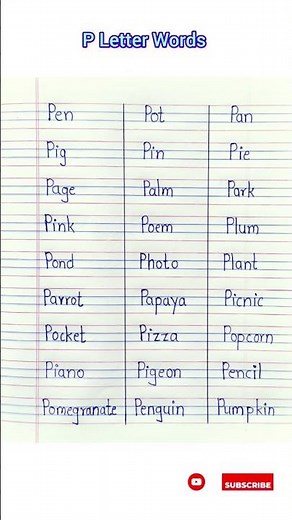 P Letter Words
Pen Pot Pan
Pig Pin Pie
Page Palm Park
Pink Poem Plum
Pond Photo Plant
Parrot Papaya Picnic
Pocket Pizza Popcorn
Piano Pigeon Pencil
Pomegranate Penguin Pumpkin
SUBSCRIBE